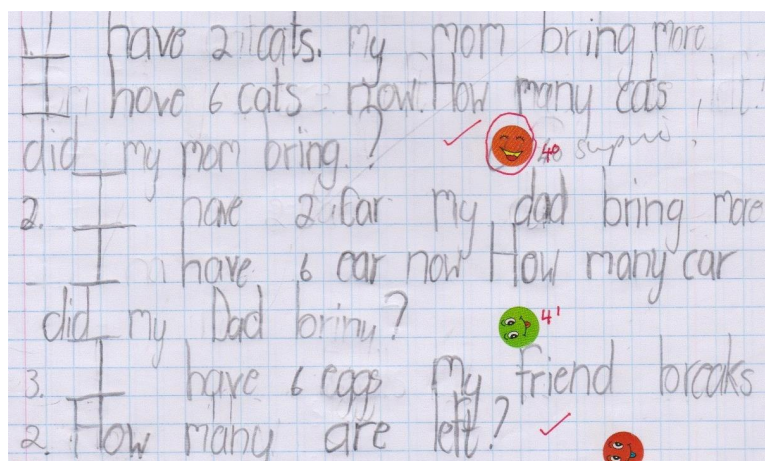 1. I have 2 cats. my mom bring more
I have 6 cats now. How many cats
did my mom bring.?
2. I have 2 car my dad bring mae
I have 6 car now How many car
did my Dad briny?
3. I have 6 eggs My friend breaks
2. How many are left?